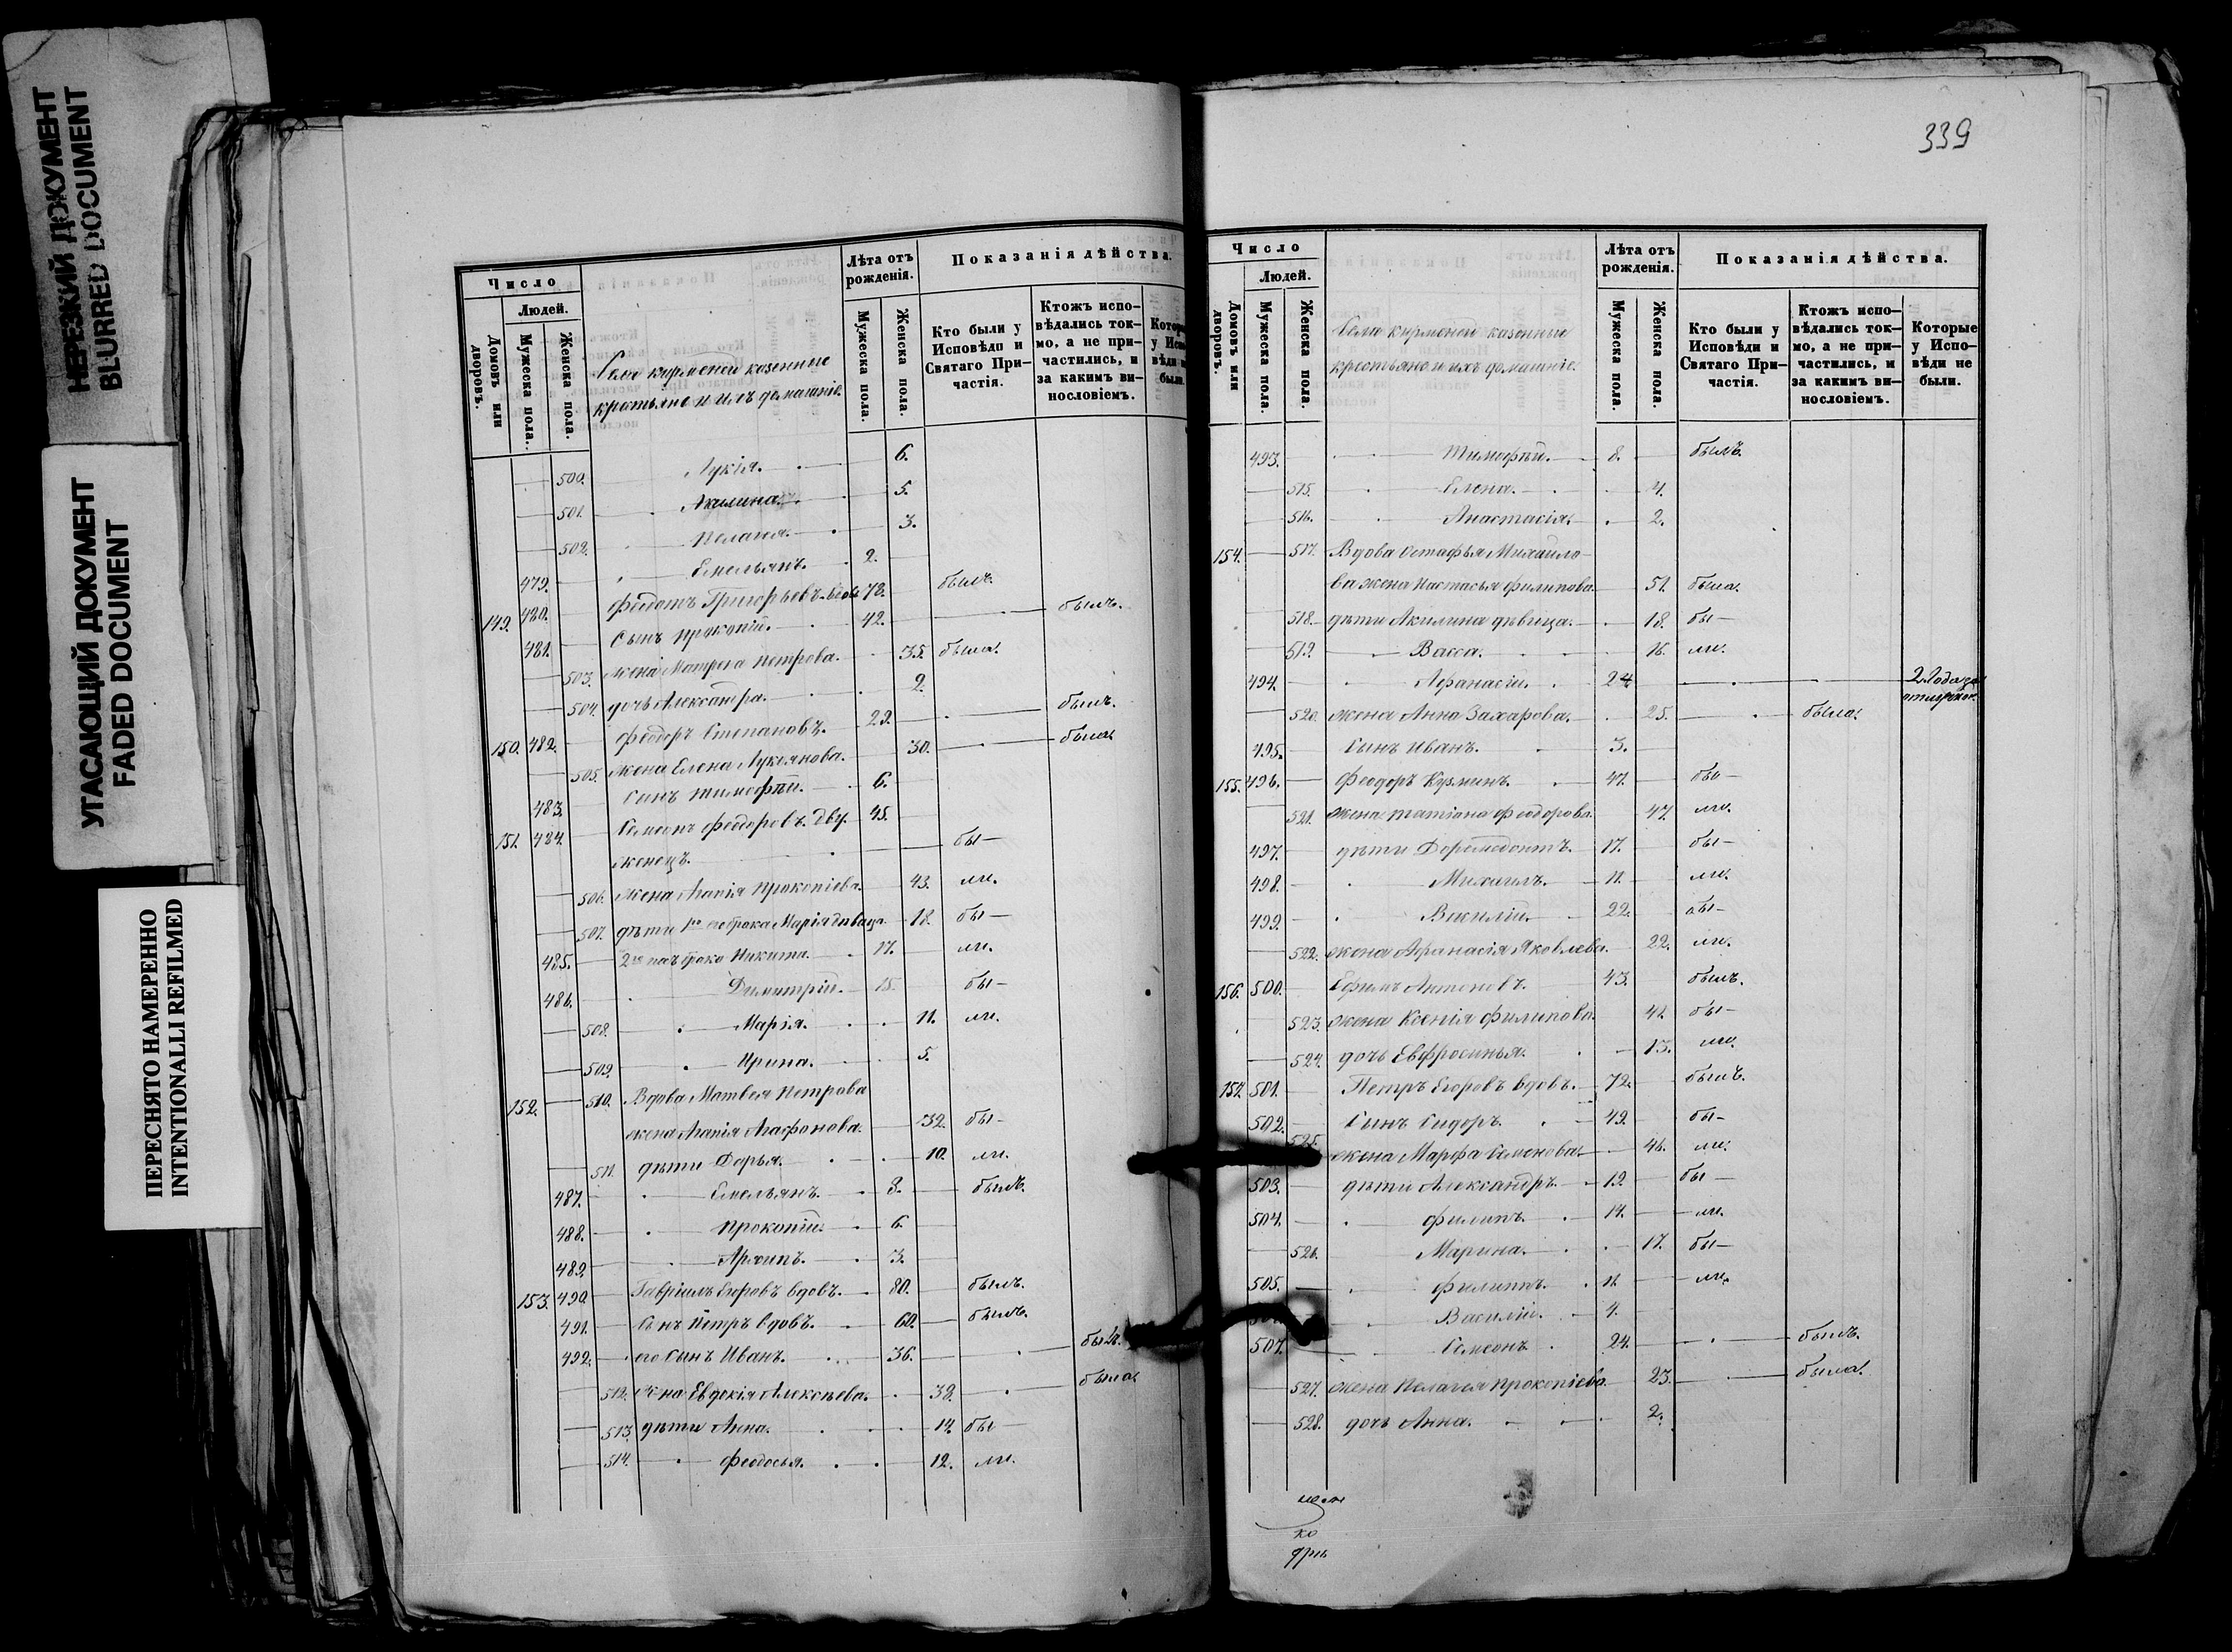 НЕРЕЗКИЙ ДОКУМЕНТ
BLURRED DOCUMENT
УГАСАЮЩИЙ ДОКУМЕНТ
FADED DOCUMENT
ПЕРЕСНЯТО НАМЕРЕННО
INTENTIONALLI REFILMED
Число
Людей.
Домовъ или дворовъ.
Мужеска пола.
Женска пола.
Село казенные
крестьяне и ихъ домашніе.
Лѣта отъ рожденія.
Мужеска пола.
Женска пола.
Показанія дѣйства.
Кто были у Исповѣди и Святаго Причастія.
Ктожъ исповѣдались токмо, а не причастились, и за какимъ винословіемъ.
500. Лукія. 6.
501. Акилина. 5.
502. Пелагея. 3.
479. Емельянъ. 2.
149. 480. Феодотъ Григорьевъ вдов 78. былъ.
481. Сынъ Прокопій. 42. былъ.
503. жена Матрена Петрова. 35. была.
504. дочь Александра. 2.
150. 482. Феодоръ Степановъ. 29. былъ.
505. жена Елена Лукьянова. 30. была.
483. Сынъ Тимофѣй. 6.
151. 484. Семеонъ Феодоровъ. Дву- 45.
женецъ. бы-
506. жена Агапія Прокопіева. 43. ли.
507. дѣти 1го его брака Марія дѣвица 18. бы-
485. 2го Никита. 17. ли.
486. Димитрій. 15. бы-
508. Марія. 11. ли.
509. Ирина. 5.
152. 510. Вдова Матвея Петрова
жена Агапія Агафонова. 32. бы-
511. дѣти Дарья. 10. ли.
487. Емельянъ. 8. былъ.
488. Прокопій. 6.
489. Архипъ. 3.
153. 490. Гавріилъ Егоровъ вдовъ. 80. былъ.
491. Сынъ Петръ вдовъ. 60. былъ.
492. его Сынъ Иванъ. 36. былъ.
512. жена Евдокія Алексѣева. 38. была.
513. дѣти Анна. 14. бы-
514. Феодосья. 12. ли.
339
Число
Людей.
Домовъ или дворовъ.
Мужеска пола.
Женска пола.
Село казенные
крестьяне и ихъ домашніе.
Лѣта отъ рожденія.
Мужеска пола.
Женска пола.
Показанія дѣйства.
Кто были у Исповѣди и Святаго Причастія.
Ктожъ исповѣдались токмо, а не причастились, и за какимъ винословіемъ.
Которые у Исповѣди не были.
493. Тимофѣй. 8. былъ.
515. Елена. 4.
516. Анастасія. 2.
154. 517. Вдова Остафья Михайло-
ва жена Настасья Филипова. 51. была.
518. дѣти Акилина дѣвица. 18. бы-
519. Васса. 16. ли.
494. Афанасій. 24.
520. жена Анна Захарова. 25. была.
495. Сынъ Иванъ. 3.
155. 496. Феодоръ Кузминъ. 47. бы-
521. жена Татіана Феодорова. 47. ли.
497. дѣти Доремедонтъ. 17. бы-
498. Михаилъ. 11. ли.
499. Василій. 22. бы-
522. жена Афанасія Яковлева. 22. ли.
156. 500. Ефимъ Антоновъ. 43. былъ.
523. жена Ксенія Филипова. 42. бы-
524. дочь Евфросинья. 13. ли.
157. 501. Петръ Егоровъ вдовъ. 72. былъ.
502. Сынъ Сидоръ. 49. бы-
525. жена Марфа Семенова. 46. ли.
503. дѣти Александръ. 19. бы-
504. Филипъ. 14. ли.
526. Марина. 17. бы-
505. Филиппъ. 11. ли.
Василій. 4.
507. Семеонъ. 24. былъ.
527. жена Пелагея Прокопіева. 23. была.
528. дочь Анна. 2.